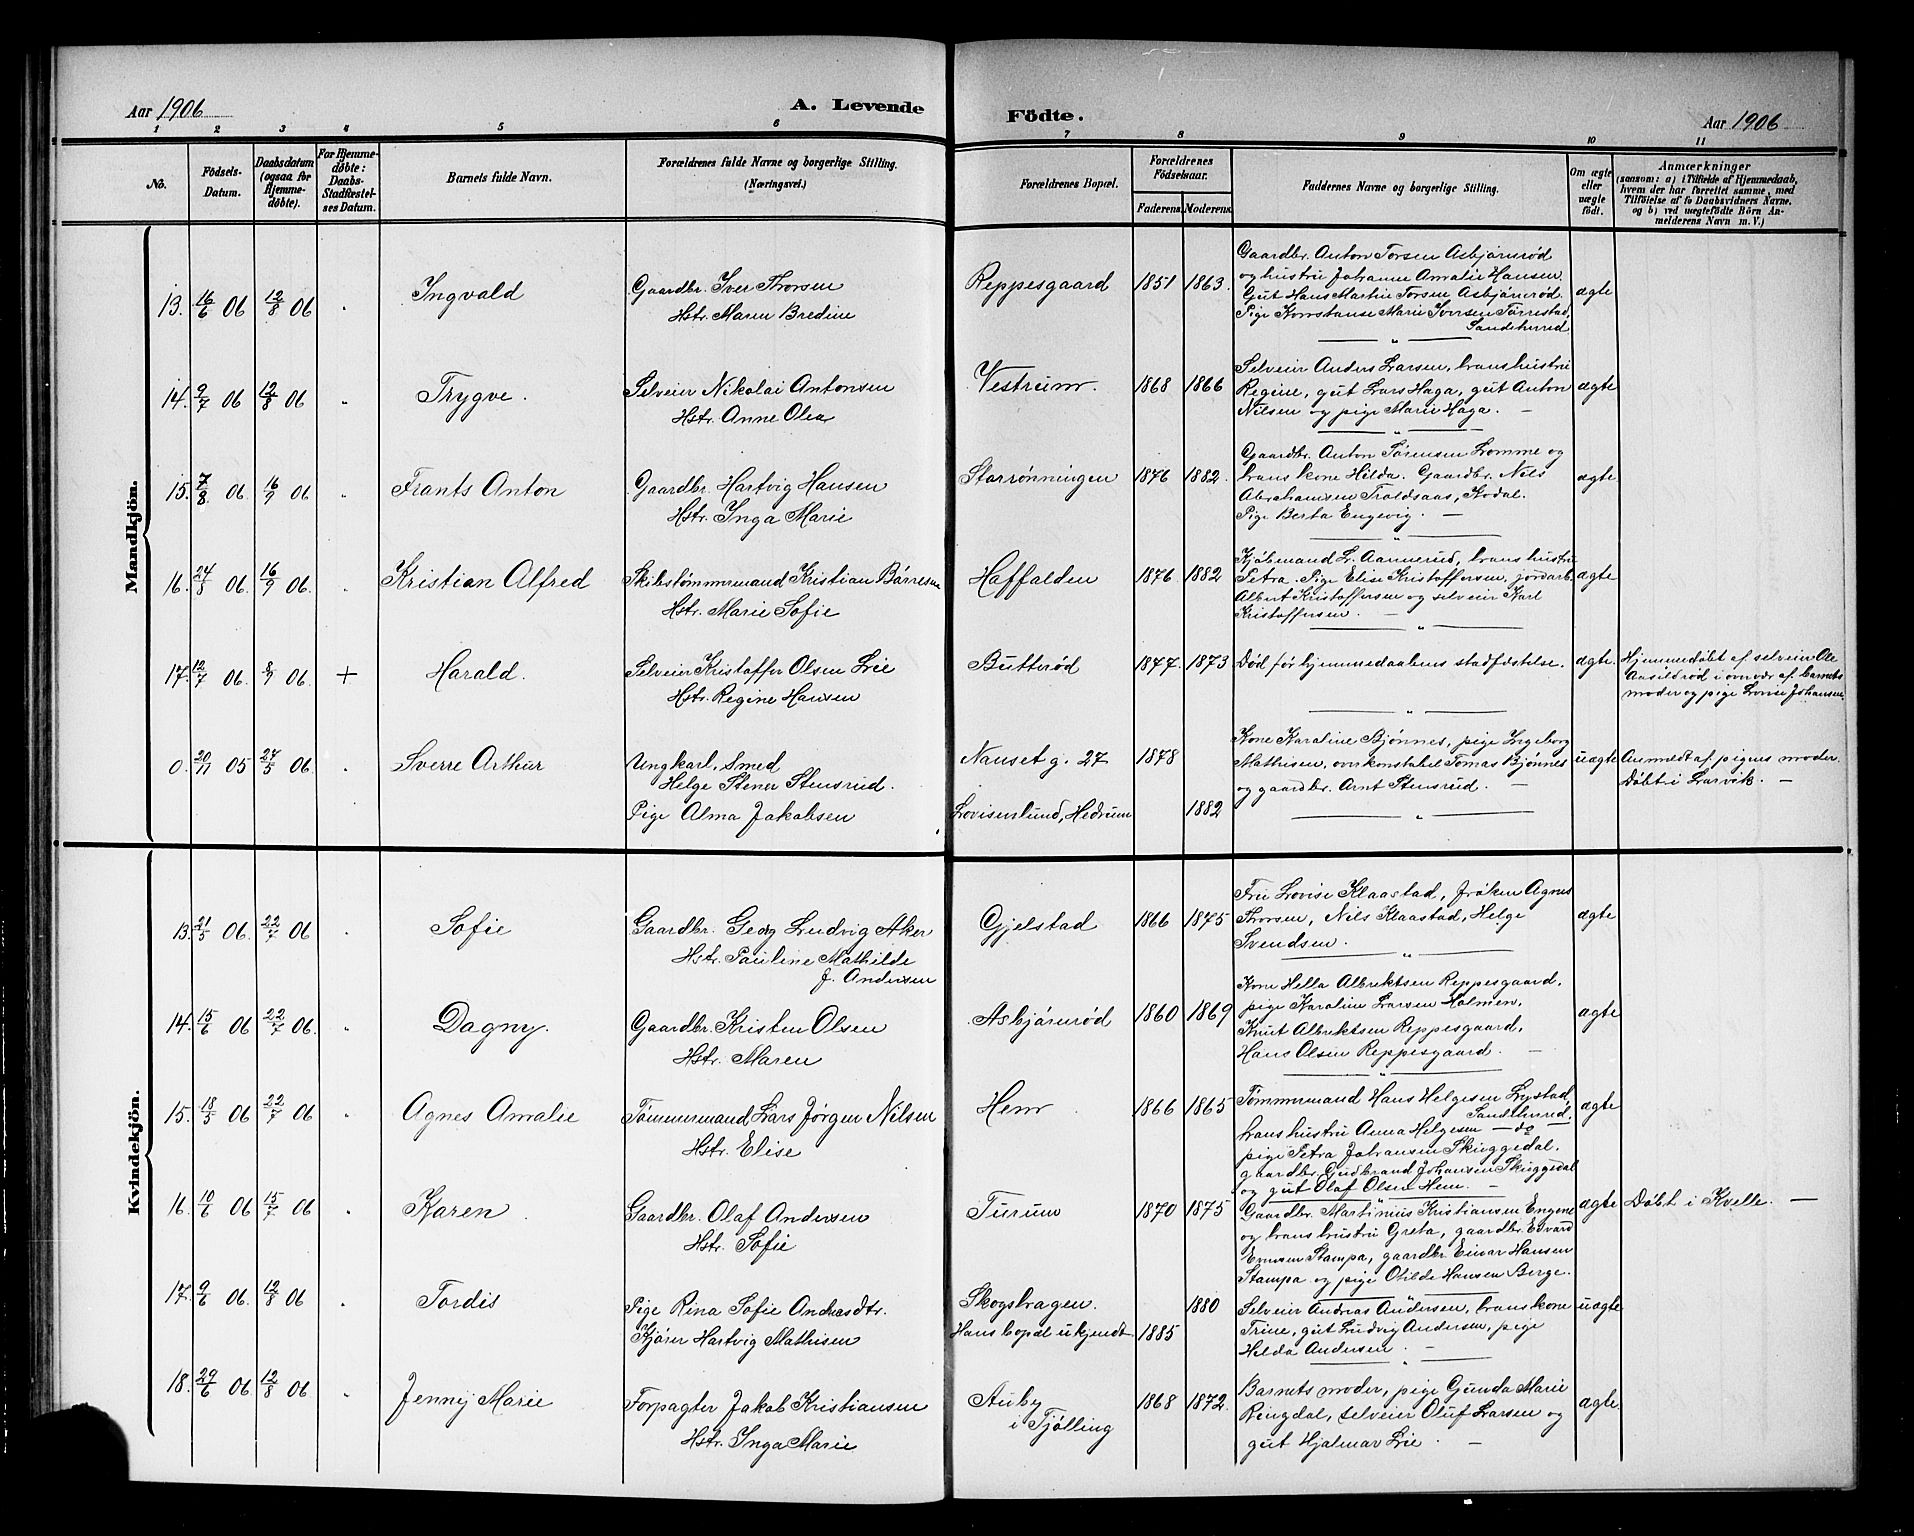 Aar 1906 A. Levende Födte. Aar 1906
1 2 3 4 5 6 7 8 9 10 11
No. Födsels-Datum. Daabsdatum (ogsaa for Hjemme-døbte). For Hjemme-døbte: Daabs-Stadfæstel-ses Datum. Barnets fulde Navn. Forældrenes fulde Navne og borgerlige Stilling. (Næringsvei.) Forældrenes Bopæl. Forældrenes Födselsaar. Faderens. Moderens. Faddernes Navne og borgerlige Stilling. Om ægte eller uægte födt. Anmærkninger (saasom: a) i Tilfælde af Hjemmedaab, hvem der har forrettet samme, med Tilföielse af to Daabsvidners Navne. og b) ved uægtefödte Börn An-melderens Navn m. V.)
Mandkjön.
13. 16/6 06 12/8 06 Ingvald Gaardbr. Iver Thorsen
Hstr. Maren Bredine
Reppesgaard 1851 1863.
Gaardbr. Anton Torsen Asbjørnrød
og hustru Johanne Amalie Hansen
Gut Hans Martin Torsen Asbjørnrød.
Pige Konstanse Marie Iversen Tørrestad,
Sandeherred
ægte
14. 9/7 06 12/8 06 Trygve. Selveier Nikolai Antonsen
Hstr. Anne Olea
Vestrum. 1868 1866
Selveier Anders Larsen, hans hustru
Regine, gut Lars Haga, gut Anton
Nilsen og pige Marie Haga. —
ægte
15. 7/8 06. 16/9 06 Frants Anton Gaardbr. Hartvig Hansen
Hstr. Inga Marie
Storrønningen 1876 1882.
Gaardbr. Anton Sørensen Lomme og
hans kone Hilda. Gaardbr. Nils
Abrahamsen Troldsaas, Kodal.
Pige Berta Engevig. —
ægte
16. 24/8 06. 16/9 06. Kristian Alfred Skibstømmermand Kristian Børresen
Hstr. Marie Sofie
Haffalden 1876. 1882
Kjøbmand L. Aannerud, hans hustru
Petra. Pige Elise Kristoffersen, jordarb.
Albert Kristoffersen og selveier Karl
Kristoffersen. —
ægte
17. 12/7 06. 8/9 06. + Harald. Selveier Kristoffer Olsen Lie
Hstr. Regine Hansen
Butterød 1847. 1873
Død før hjemmedaabens stadfæstelse.
ægte.
Hjemmedøbt af selveier Ole
Aasildrød i overvær af barnets
moder og pige Lovise Johansen.
0. 20/11 05 27/5 06. Sverre Arthur Ungkarl, Smed
Helge Stener Stensrud.
Pige Alma Jakobsen
Nanset g. 27 1878
Lovisenlund, Hedrum 1882
Kone Karoline Bjønnes, pige Ingeborg
Mathisen, overkonstabel Tomas Bjønnes
og gaardbr. Arnt Stensrud. —
uægte
Anmeldt af pigens moder.
Døbt i Larvik. —
Kvindekjön.
13. 21/5 06. 22/7 06 Sofie Gaardbr. Georg Ludvig Aker
Hstr. Pauline Mathilde
J. Andersen
Gjelstad 1866 1875
Fru Lovise Klaastad, frøken Agnes
Thorsen, Nils Klaastad, Helge
Svendsen.
ægte
14. 15/6 06 22/7 06. Dagny. Gaardbr. Kristen Olsen
Hstr. Maren
Asbjørnrød 1860 1869
Kone Hella Albrektsen Reppesgaard,
pige Karoline Larsen Holmen,
Knut Albrektsen Reppesgaard,
Hans Olsen Reppesgaard. —
ægte
15. 18/5 06 22/7 06 Agnes Amalie Tømmermand Lars Jørgen Nilsen
Hstr. Elise
Hem 1866 1865
Tømmermand Hans Helgesen Lystad,
Sandeherred,
hans hustru Anna Helgesen — do —
pige Petra Johansen Skuggedal.
gaardbr. Gudbrand Johansen Skuggedal
og gut Olaf Olsen Hem. —
ægte
16. 10/6 06 15/7 06 Karen Gaardbr. Olaf Andersen
Hstr. Sofie
Furum 1870 1875
Gaardbr. Martinius Kristiansen Engene
og hans hustru Greta, gaardbr. Edvard
Evensen Stampa, gaardbr. Einar Hansen
Stampa og pige Otilde Hansen Berge.
ægte
Døbt i Kvelle. —
17. 9/6 06. 12/8 06 Tordis Pige Rina Sofie Andreasdtr.
Kjører Hartvig Mathisen
Skogshagen. 1880
Hans bopæl ukjendt 1885
Selveier Andreas Andersen, hans kone
Trine, gut Ludvig Andersen, pige
Helda Andersen. —
uægte
18. 29/6 06 12/8 06 Jenny Marie Forpagter Jakob Kristiansen
Hstr. Inga Marie
Auby
i Tjølling
1868 1872.
Barnets moder, pige Gunda Marie
Ringdal, selveier Oluf Larsen og
gut Hjalmar Lie. —
ægte.